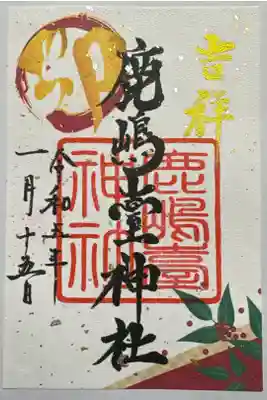 吉祥
卯
鹿嶋臺神社
令和五年
一月十五日
鹿嶋臺
神社